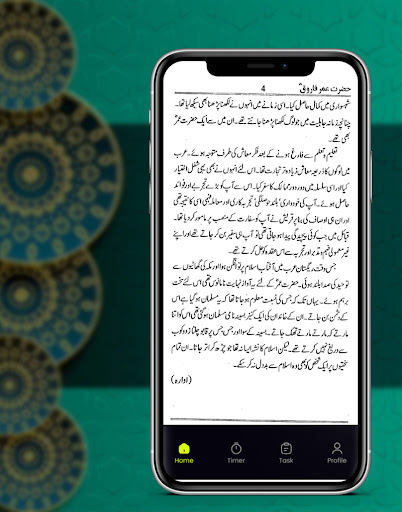 حضرت عمر فاروقؓ
4
شہسواری میں کمال حاصل کیا۔ اسی زمانے میں انہوں نے لکھنا پڑھنا بھی سیکھ لیا تھا۔
چنانچہ زمانہ جاہلیت میں جو لوگ لکھنا پڑھنا جانتے تھے۔ ان میں سے ایک حضرت عمرؓ
بھی تھے۔
تعلیم و تعلم سے فارغ ہونے کے بعد فکر معاش کی طرف متوجہ ہوئے۔ عرب
میں لوگوں کا ذریعہ معاش زیادہ تر تجارت تھا۔ اس لئے انہوں نے بھی یہی شغل اختیار
کیا اور اسی سلسلہ میں دور دور ممالک کا سفر کیا۔ اس سے آپ کو بڑے تجربے اور فوائد
حاصل ہوئے۔ آپ کی خودداری بلند حوصلگی، تجربہ کاری اور معاملہ فہمی اسی کا نتیجہ تھی
اور ان ہی اوصاف کی بنا پر قریش نے آپ کو سفارت کے منصب پر مامور کر دیا تھا۔
قبائل میں جب کوئی پیچیدگی پیدا ہو جاتی تھی تو آپ ہی سفیر بن کر جاتے تھے اور اپنے
غیر معمولی فہم و تدبر اور تجربہ سے اس عقدہ کو حل کرتے تھے۔
جس وقت ریگستان عرب میں آفتاب اسلام پرتو افگن ہوا اور مکہ کی گھاٹیوں سے
توحید کی صدا بلند ہوئی۔ حضرت عمرؓ کے لئے یہ آواز نہایت نامانوس تھی اس لئے سخت
برہم ہوئے۔ یہاں تک کہ جس کی نسبت معلوم ہو جاتا تھا کہ یہ مسلمان ہو گیا ہے اس
کے دشمن بن جاتے۔ ان کے خاندان کی ایک کنیز لبینہ نامی مسلمان ہو گئی تھی اس کو اتنا
مارتے کہ مارتے مارتے تھک جاتے۔ لبینہ کے سوا اور جس جس پر قابو چلتا زدوکوب
سے دریغ نہیں کرتے تھے۔ لیکن اسلام کا نشہ ایسا نہ تھا جو چڑھ کر اتر جاتا۔ ان تمام
سختیوں پر ایک شخص کو بھی وہ اسلام سے بددل نہ کر سکے۔
(ادارہ)
Home
Timer
Task
Profile